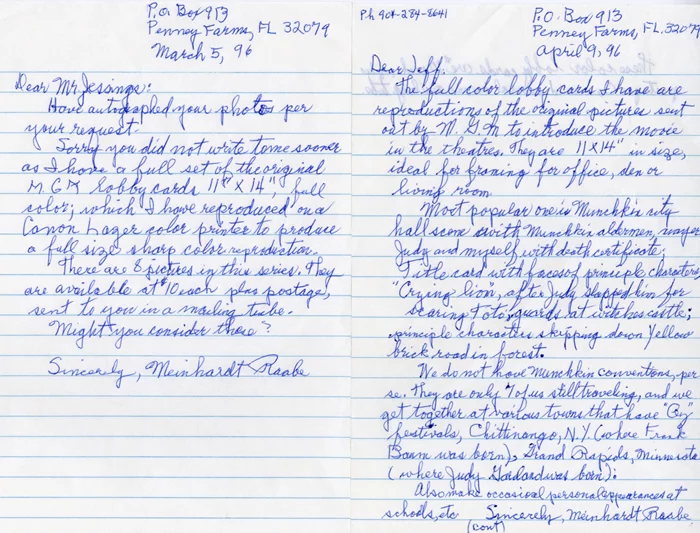 P.O. Box 913
Penney Farms, FL 32079
March 5, 96
Dear Mr Jessings:
Have autographed your photos per
your request.
Sorry you did not write to me sooner
as I have a full set of the original
M.G.M lobby cards 11" X 14" full
color; which I have reproduced on a
Canon Lazer color printer to produce
a full size sharp color reproduction.
There are 8 pictures in this series. They
are available at $10 each plus postage,
sent to you in a mailing tube.
Might you consider these?
Sincerely, Meinhardt Raabe
Ph 904-284-8641
P.O. Box 913
Penney Farms, FL. 32079
April 9, 96
Dear Jeff:
The full color lobby cards I have are
reproductions of the original pictures sent
out by M.G.M to introduce the movie
in the theatres. They are 11 X 14" in size,
ideal for framing for office, den or
living room
Most popular one is Munchkin city
hall scene with Munchkin aldermen, mayor
Judy and myself with death certificate;
Title card with faces of principle characters,
"Crying lion", after Judy slapped him for
scaring Toto; guards at witches castle;
principle characters skipping down Yellow
brick road in forest.
We do not have Munchkin conventions, per
se. They are only 7 of us still traveling, and we
get together at various towns that have "Oz"
festivals, Chittinango, N.Y. (where Frank
Baum was born); Grand Rapids, Minnesota
(where Judy Garland was born):
Also make occasional personal appearances at
schools, etc Sincerely, Meinhardt Raabe
(cont)